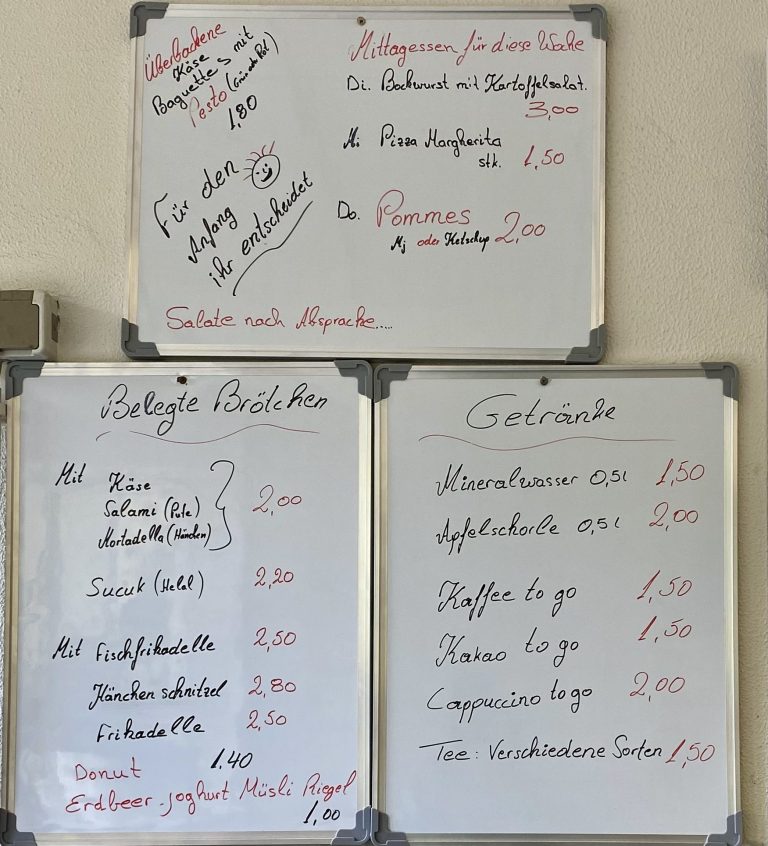 Überbackene
Käse
Baguettes mit
Pesto (Grün oder Rot)
1,80
Für den
Anfang
ihr entscheidet
Mittagessen für diese Woke
Di. Bockwurst mit Kartoffelsalat.
3,00
Mi Pizza Margherita
stk. 1,50
Do. Pommes
Mj oder Ketschup 2,00
Salate nach Absprache....
Belegte Brötchen
Mit Käse
Salami (Pute)
Mortadella (Hänchen)
2,00
Sucuk (Helal) 2,20
Mit Fischfrikadelle 2,50
Hänchen schnitzel 2,80
Frikadelle 2,50
Donut 1.40
Erdbeer-joghurt Müsli Riegel
1,00
Getränke
Mineralwasser 0,5l 1,50
Apfelschorle 0,5l 2,00
Kaffee to go 1,50
Kakao to go 1,50
Cappuccino to go 2,00
Tee: Verschiedene Sorten 1,50